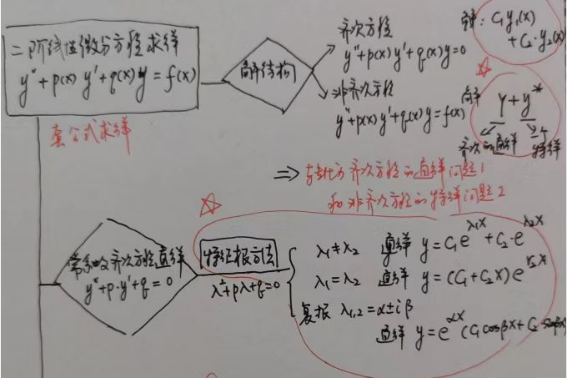 二阶线性微分方程求解
y″+p(x)y′+q(x)y=f(x)
套公式求解
齐次方程
y″+p(x)y′+q(x)y=0
非齐次方程
y″+p(x)y′+q(x)y=f(x)
C₁y₁(x)
+C₂·y₂(x)
Y+y*
齐次的通解 特解
⇒转化为齐次方程的通解问题1
和非齐次方程的特解问题2
常系数齐次方程通解
y″+p·y′+q=0
特征根方法
λ²+pλ+q=0
λ₁≠λ₂ 通解 y=C₁e^{λ₁x}+C₂·e^{λ₂x}
λ₁=λ₂ 通解 y=(C₁+C₂x)e
复根 λ₁,₂=α±iβ
通解 y=e^{αx}(C₁cosβx+C₂sinβx